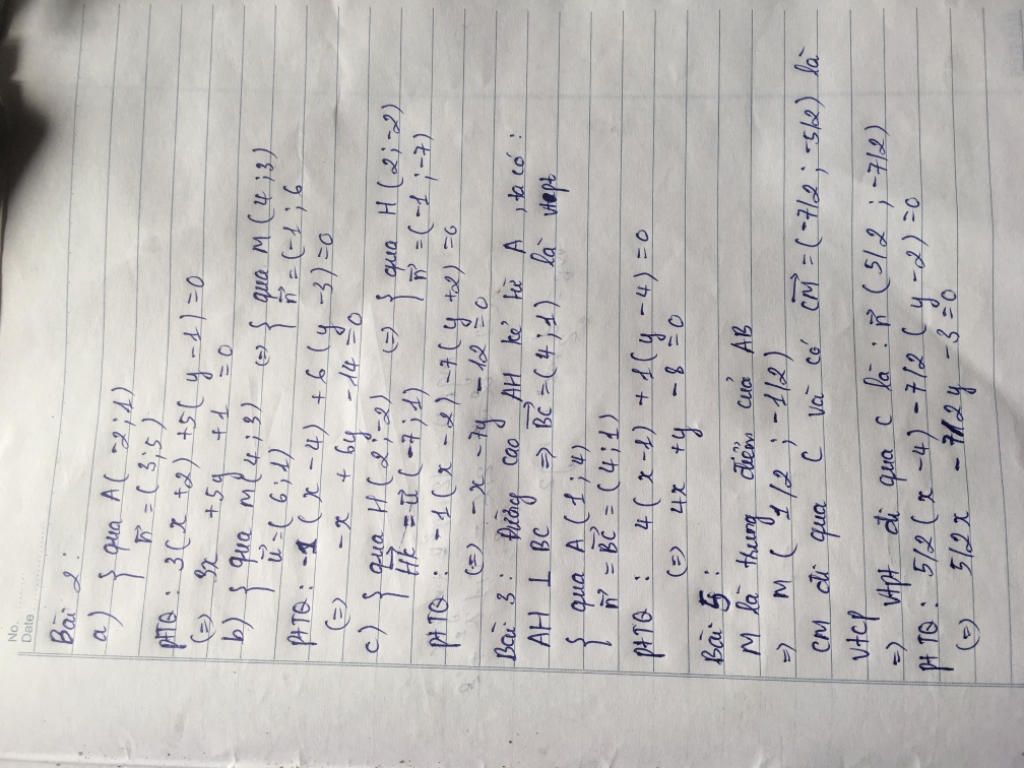 No.
Date
Bài 2 :
a) { qua A(-2;1)
n⃗ = (3;5)
PTTQ : 3(x+2)+5(y-1)=0
(=) 3x +5y +1 =0
b) { qua M(4;3) (=) { qua M(4;3)
u⃗=(6;1) n⃗=(-1;6
PTTQ : -1(x-4)+6(y-3)=0
(=) -x + 6y -14=0
c) { qua H(2;-2) (=) { qua H(2;-2)
HK = u⃗(-7;1) n⃗=(-1;-7)
PTTQ : -1(x-2)-7(y+2)=0
(=) -x -7y -12=0
Bài 3 : Đường cao AH kẻ từ A , ta có :
AH ⊥ BC => BC⃗=(4;1) là vtpt
{ qua A(1;4)
n⃗ = BC⃗ = (4;1)
PTTQ : 4(x-1)+1(y-4)=0
(=) 4x +y -8=0
Bài 5 :
M là trung điểm của AB
=> M ( 1/2 ; -1/2)
CM đi qua C và có CM⃗ = (-7/2 ; -5/2) là
VTCP
=> Vtpt đi qua C là : n⃗ (5/2 ; -7/2)
PTTQ : 5/2(x-4)-7/2(y-2)=0
(=) 5/2x -7/2y -3=0